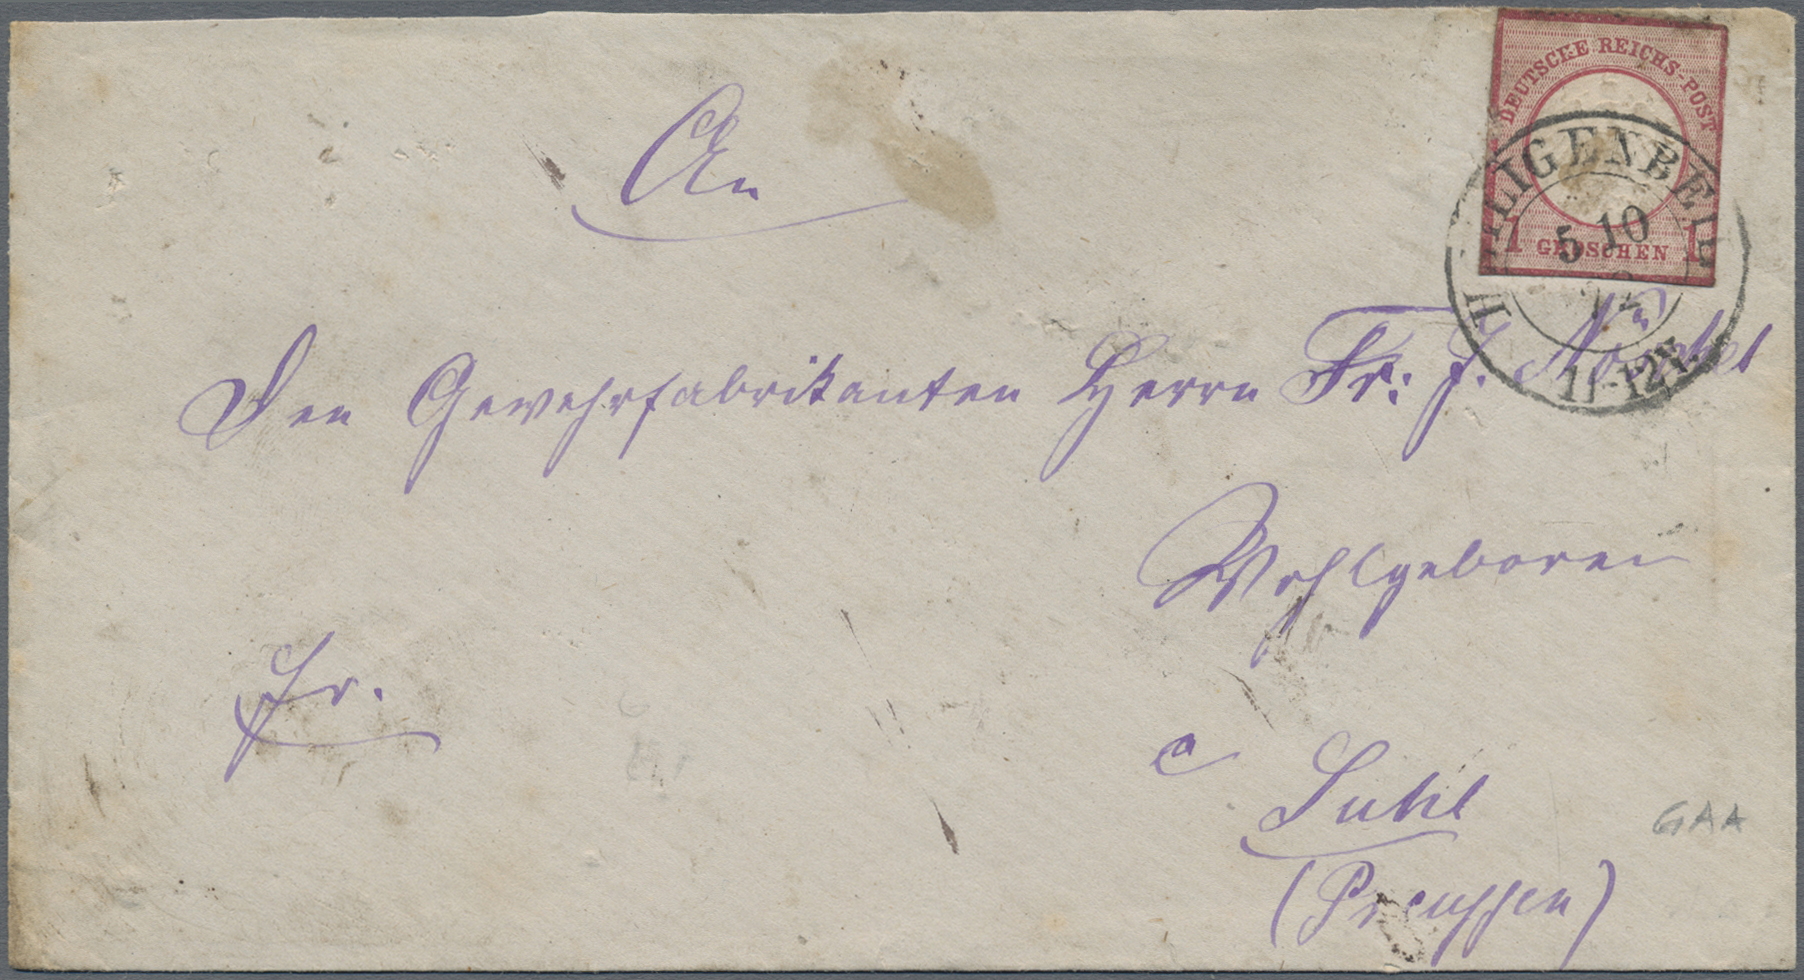 DEUTSCHE REICHS-POST
1 GROSCHEN 1
HEILIGENBEIL
5 10
11-12V.
An
Den Gewehrfabrikanten Herrn Fr: J.
Wohlgeboren
Fr.
a Suhl
(Preussen)
GAA